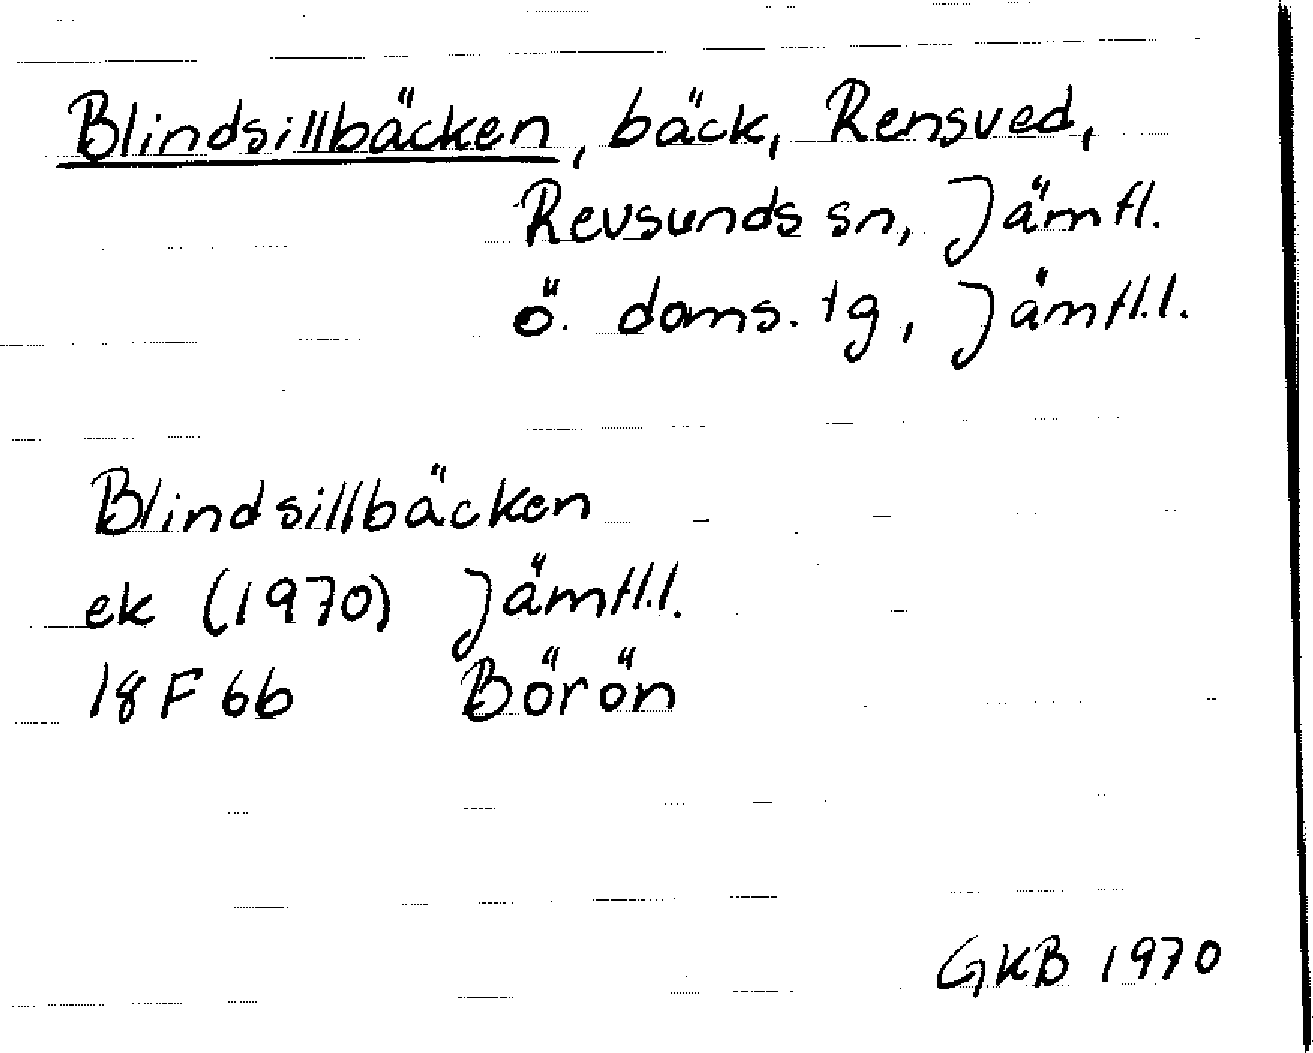 Blindsillbäcken, bäck, Rensved,
Revsunds sn, Jämtl.
ö. doms. tg, Jämtl.l.
Blindsillbäcken
ek (1970) Jämtl.l.
18 F 6b Börön
GKB 1970